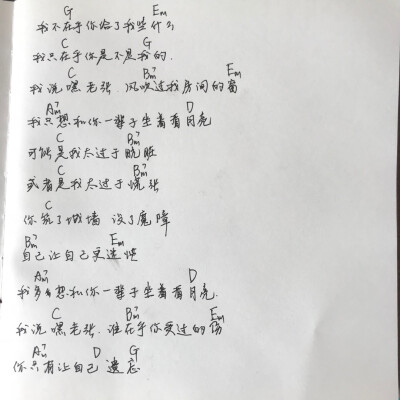 G Em
我不在乎你给了我些什么
C G
我只在乎你是不是我的.
C Bm7 Em
我说嘿老张 风吹过我房间的窗
Am7 D
我只想和你一辈子坐着看月亮
C Bm7
可能是我太过于肮脏
C Bm7
或者是我太过于慌张
C
你筑了城墙 设了魔障
Bm7 Em
自己让自己受迷惶
Am7 D
我多么想和你一辈子坐着看月亮.
C Bm7 Em
我说嘿老张. 谁在乎你受过的伤
Am7 D G
你只有让自己 遗忘